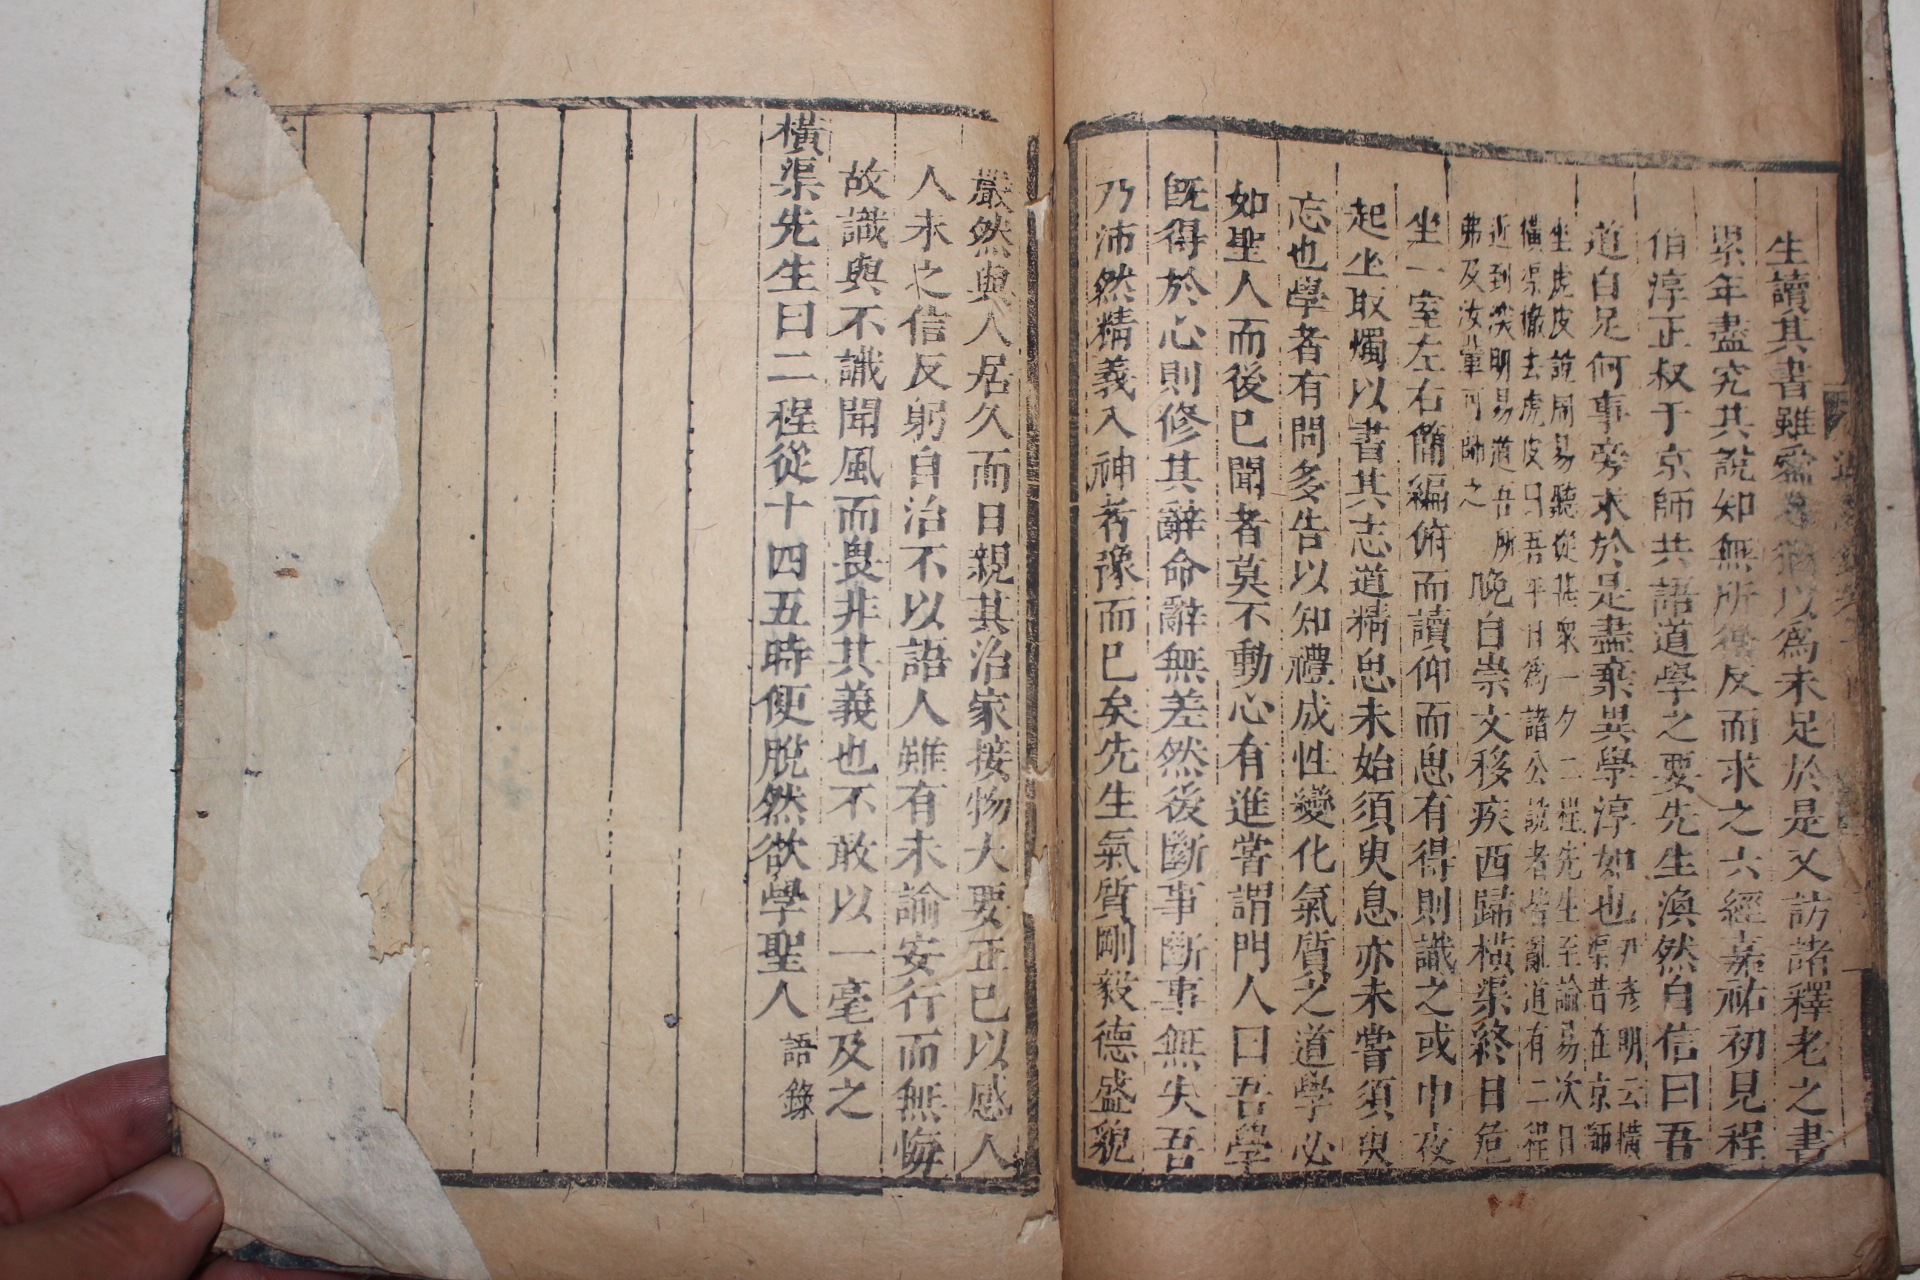 生讀其書雖愛之猶以爲未足於是又訪諸釋老之書
累年盡究其說知無所得反而求之六經嘉祐初見程
伯淳正叔于京師共語道學之要先生渙然自信曰吾
道自足何事旁求於是盡棄異學淳如也尹彥明云橫
渠昔在京師
坐虎皮說周易聽從甚衆一夕二程先生至論易次日
橫渠撤去虎皮曰吾平日爲諸公說者皆亂道有二程
近到深明易道吾所
弗及汝輩可師之晚自崇文移疾西歸橫渠終日危
坐一室左右簡編俯而讀仰而思有得則識之或中夜
起坐取燭以書其志道精思未始須臾息亦未嘗須臾
忘也學者有問多告以知禮成性變化氣質之道學必
如聖人而後已聞者莫不動心有進嘗謂門人曰吾學
旣得於心則修其辭命辭無差然後斷事斷事無失吾
乃沛然精義入神者豫而已矣先生氣質剛毅德盛貌
嚴然與人居久而日親其治家接物大要正己以感人
人未之信反躬自治不以語人雖有未諭安行而無悔
故識與不識聞風而畏非其義也不敢以一毫及之
橫渠先生曰二程從十四五時便脫然欲學聖人語錄